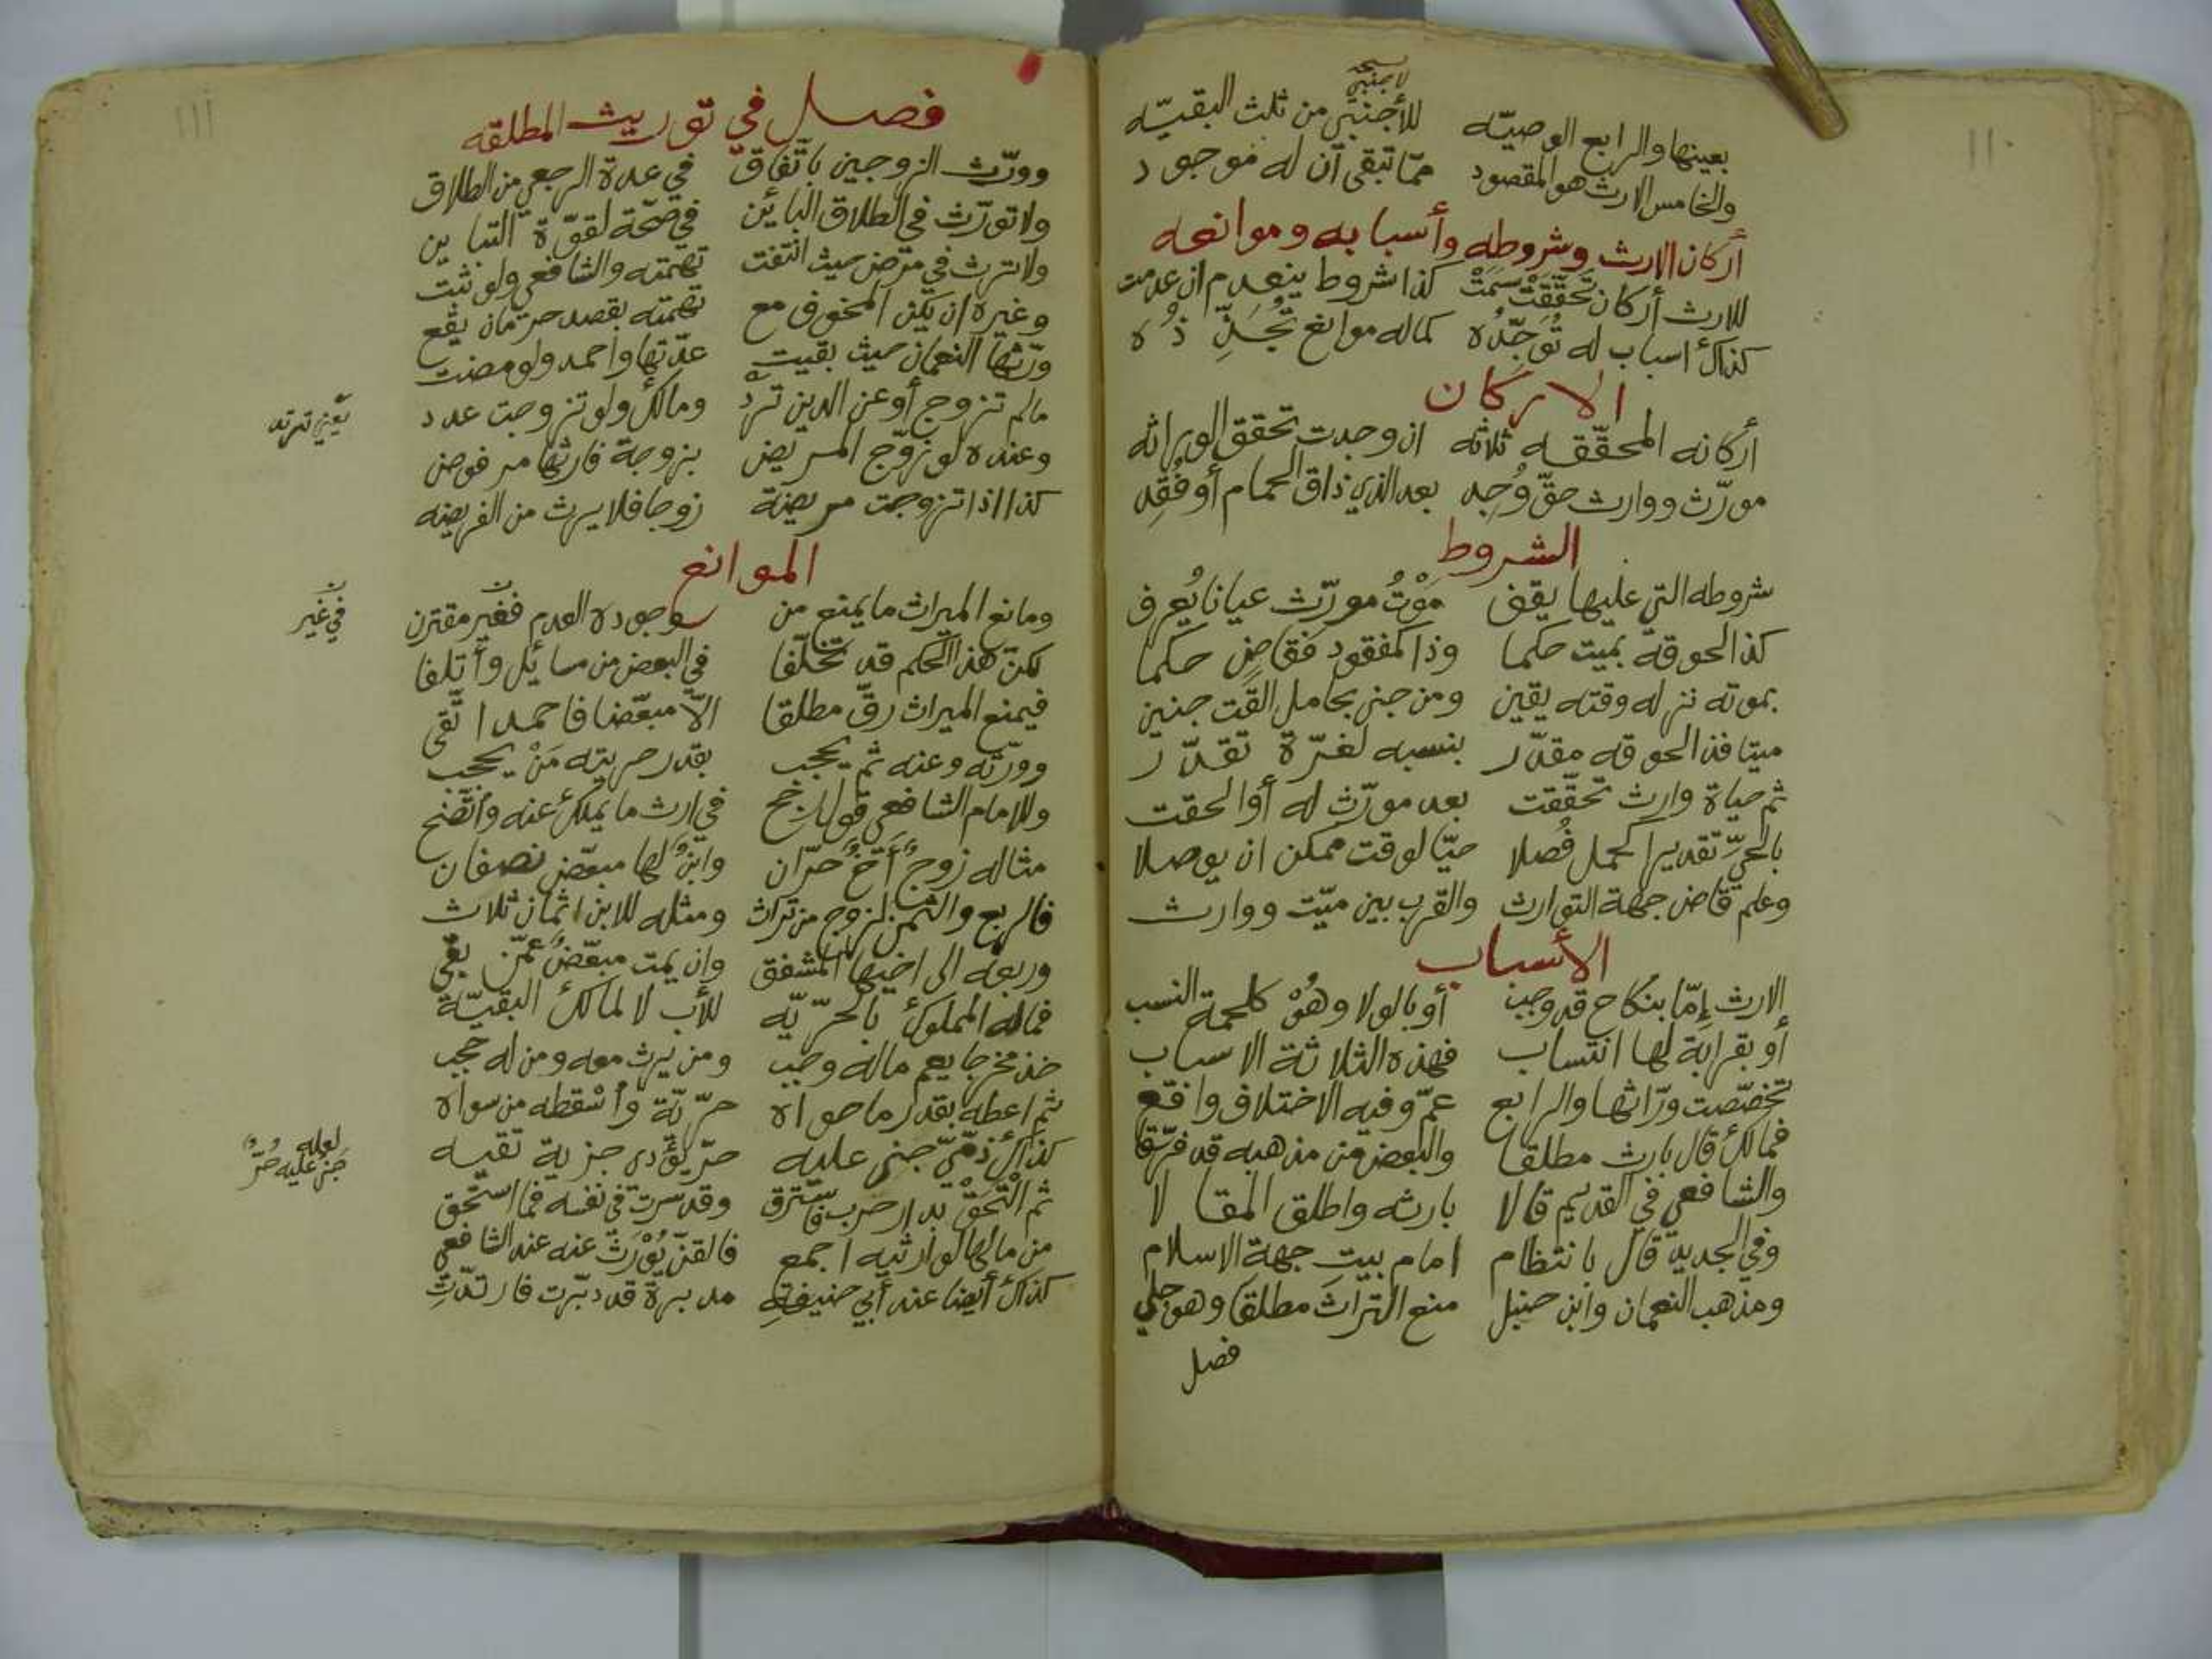 لاجنبي
بعينها والرابع الوصيّه للأجنبيّ من ثلث البقيّه
والخامس الارث هو المقصود ممّا تبقى أن له موجود
أركان الارث وشروطه وأسبابه وموانعه
للارث أركان تحقّقت سمت كذا شروط ينعدم ان عدمت
كذاك اسباب له توجّده كما له موانع
الاركان
أركانه المحقّقه ثلاثه ان وجدت تحقق الوراثه
مورّث ووارث حقّ وُجِد بعد الذي ذاق الحمام أو فُقِد
الشروط
شروطه التي عليها يقف مَوْتُ مورّث عيانا يُعرف
كذا لحوقه بميت حكما وذا كمفقود فقاضٍ حكما
بموته نزله وقته يقين ومن جنى بحامل القت جنين
ميتا فذا لحوقه مقدّر بنسبه لغرّة تقدّر
ثم حياة وارث تحقّقت بعد مورّث له أو ألحقت
بالحيّ تقديرا كحمل فُصلا حيّا لوقت ممكن ان يوصلا
وعلم قاض جهة التوارث والقرب بين ميّت ووارث
الأسباب
الارث إمّا بنكاح قد وجب أو بالولا وهُوْ كلحمة النسب
أو بقرابة لها انتساب فهذه الثلاثة الاسباب
تخصّصت ورّاثها والرابع عمّ وفيه الاختلاف واقع
فمالك قال بارث مطلقا والبعض من مذهبه قد فرّقا
والشافعي في القديم قالا بارثه واطلق المقالا
وفي الجديد قال بانتظام امام بيت جهة الاسلام
ومذهب النعمان وابن حنبل منع التراث مطلقا وهو جلي
فصل
١١٠
١١١
فصل في توريث المطلقه
وورّث الزوجين باتّفاق في عدة الرجعي من الطلاق
ولا تورّث في الطلاق البائن في صحّة لقوّة التباين
ولا ترث في مرض حيث انتفت تهمته والشافعي ولو ثبت
وغيره ان يكن المخوف مع تهمته بقصد حرمان يقع
ورّثها النعمان حيث بقيت عدّتها وأحمد ولو مضت
مالم تزوج أو عن الدين ترد ومالك ولو تزوجت عدد
وعنده لو زوّج المريض بزوجة فارثها مرفوض
كذا اذا تزوجت مريضة زوجا فلا يرث من الفريضه
الموانع
ومانع الميراث ما يمنع من وجوده العدم فغير مقترن
في غير
لكنّ هذا الحكم قد تخلّفا في البعض من مسائل وأتلفا
فيمنع الميراث رقّ مطلقا الّا مبعّضا فاحمد اتّقى
وورّثه وعنه ثم يحجب بقدر حريته مَنْ يحجب
وللامام الشافعي قول رجح في ارث ما يملك عنه وأتّضح
مثاله زوجٌ أخٌ حرّان وابنٌ لها مبعّض نصفان
فالربع والثمن لزوج من تراث ومثله للابن اثمان ثلاث
وربعه الى اخيها المشفق وان يمت مبعّضٌ عمّن بقي
فماله المملوك بالحرّيّه للأب لا لمالك البقيّة
خذ مخرجا يعم ماله وجب ومن يرث معه ومن له حجب
ثم اعطه بقدر ما حواه حرّيّة وأسقطه من سواه
كذاك ذمّيّ جنى عليه حرّ يؤدي جزية تقيه
لعله
جنى عليه حُرٌّ
ثم الْتَحَقْ بدار حرب فاسترق وقد سرت في نفسه فما استحق
من مالها لوارثيه اجمع فالقنّ يُوْرَثْ عنه عند الشافعي
كذاك أيضا عند أبي حنيفةِ مدبرة قد دبّرت فارتدّتِ